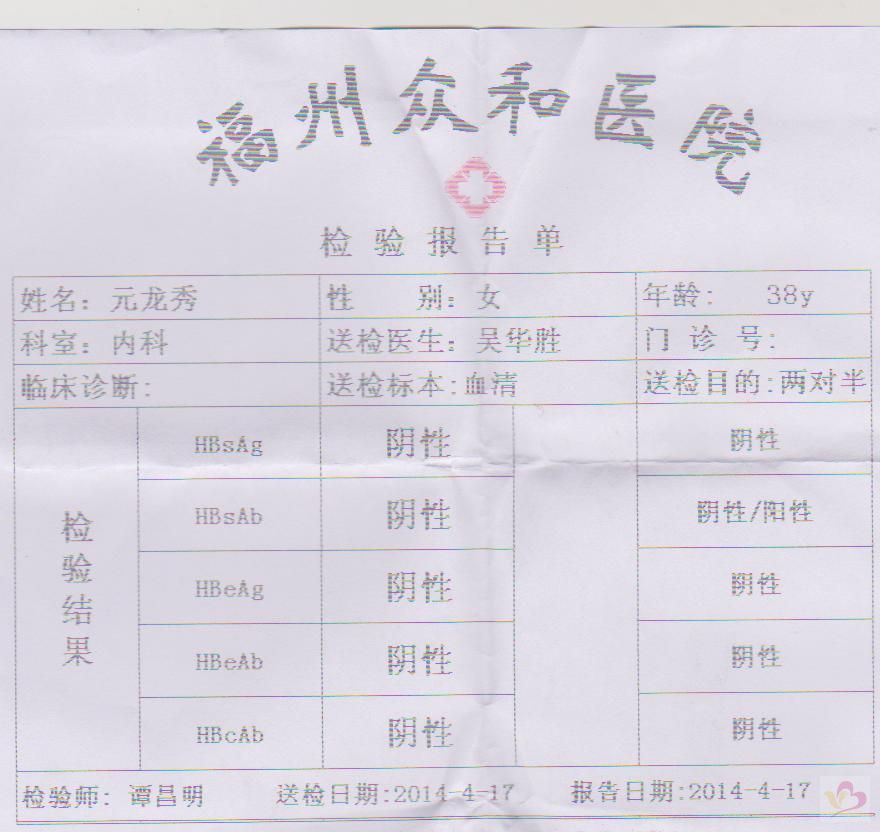 福州众和医院
检验报告单
姓名：元龙秀 性 别：女 年龄： 38y
科室：内科 送检医生：吴华胜 门 诊 号：
临床诊断： 送检标本：血清 送检目的：两对半
检验结果
HBsAg 阴性 阴性
HBsAb 阴性 阴性/阳性
HBeAg 阴性 阴性
HBeAb 阴性 阴性
HBcAb 阴性 阴性
检验师： 谭昌明 送检日期:2014-4-17 报告日期:2014-4-17